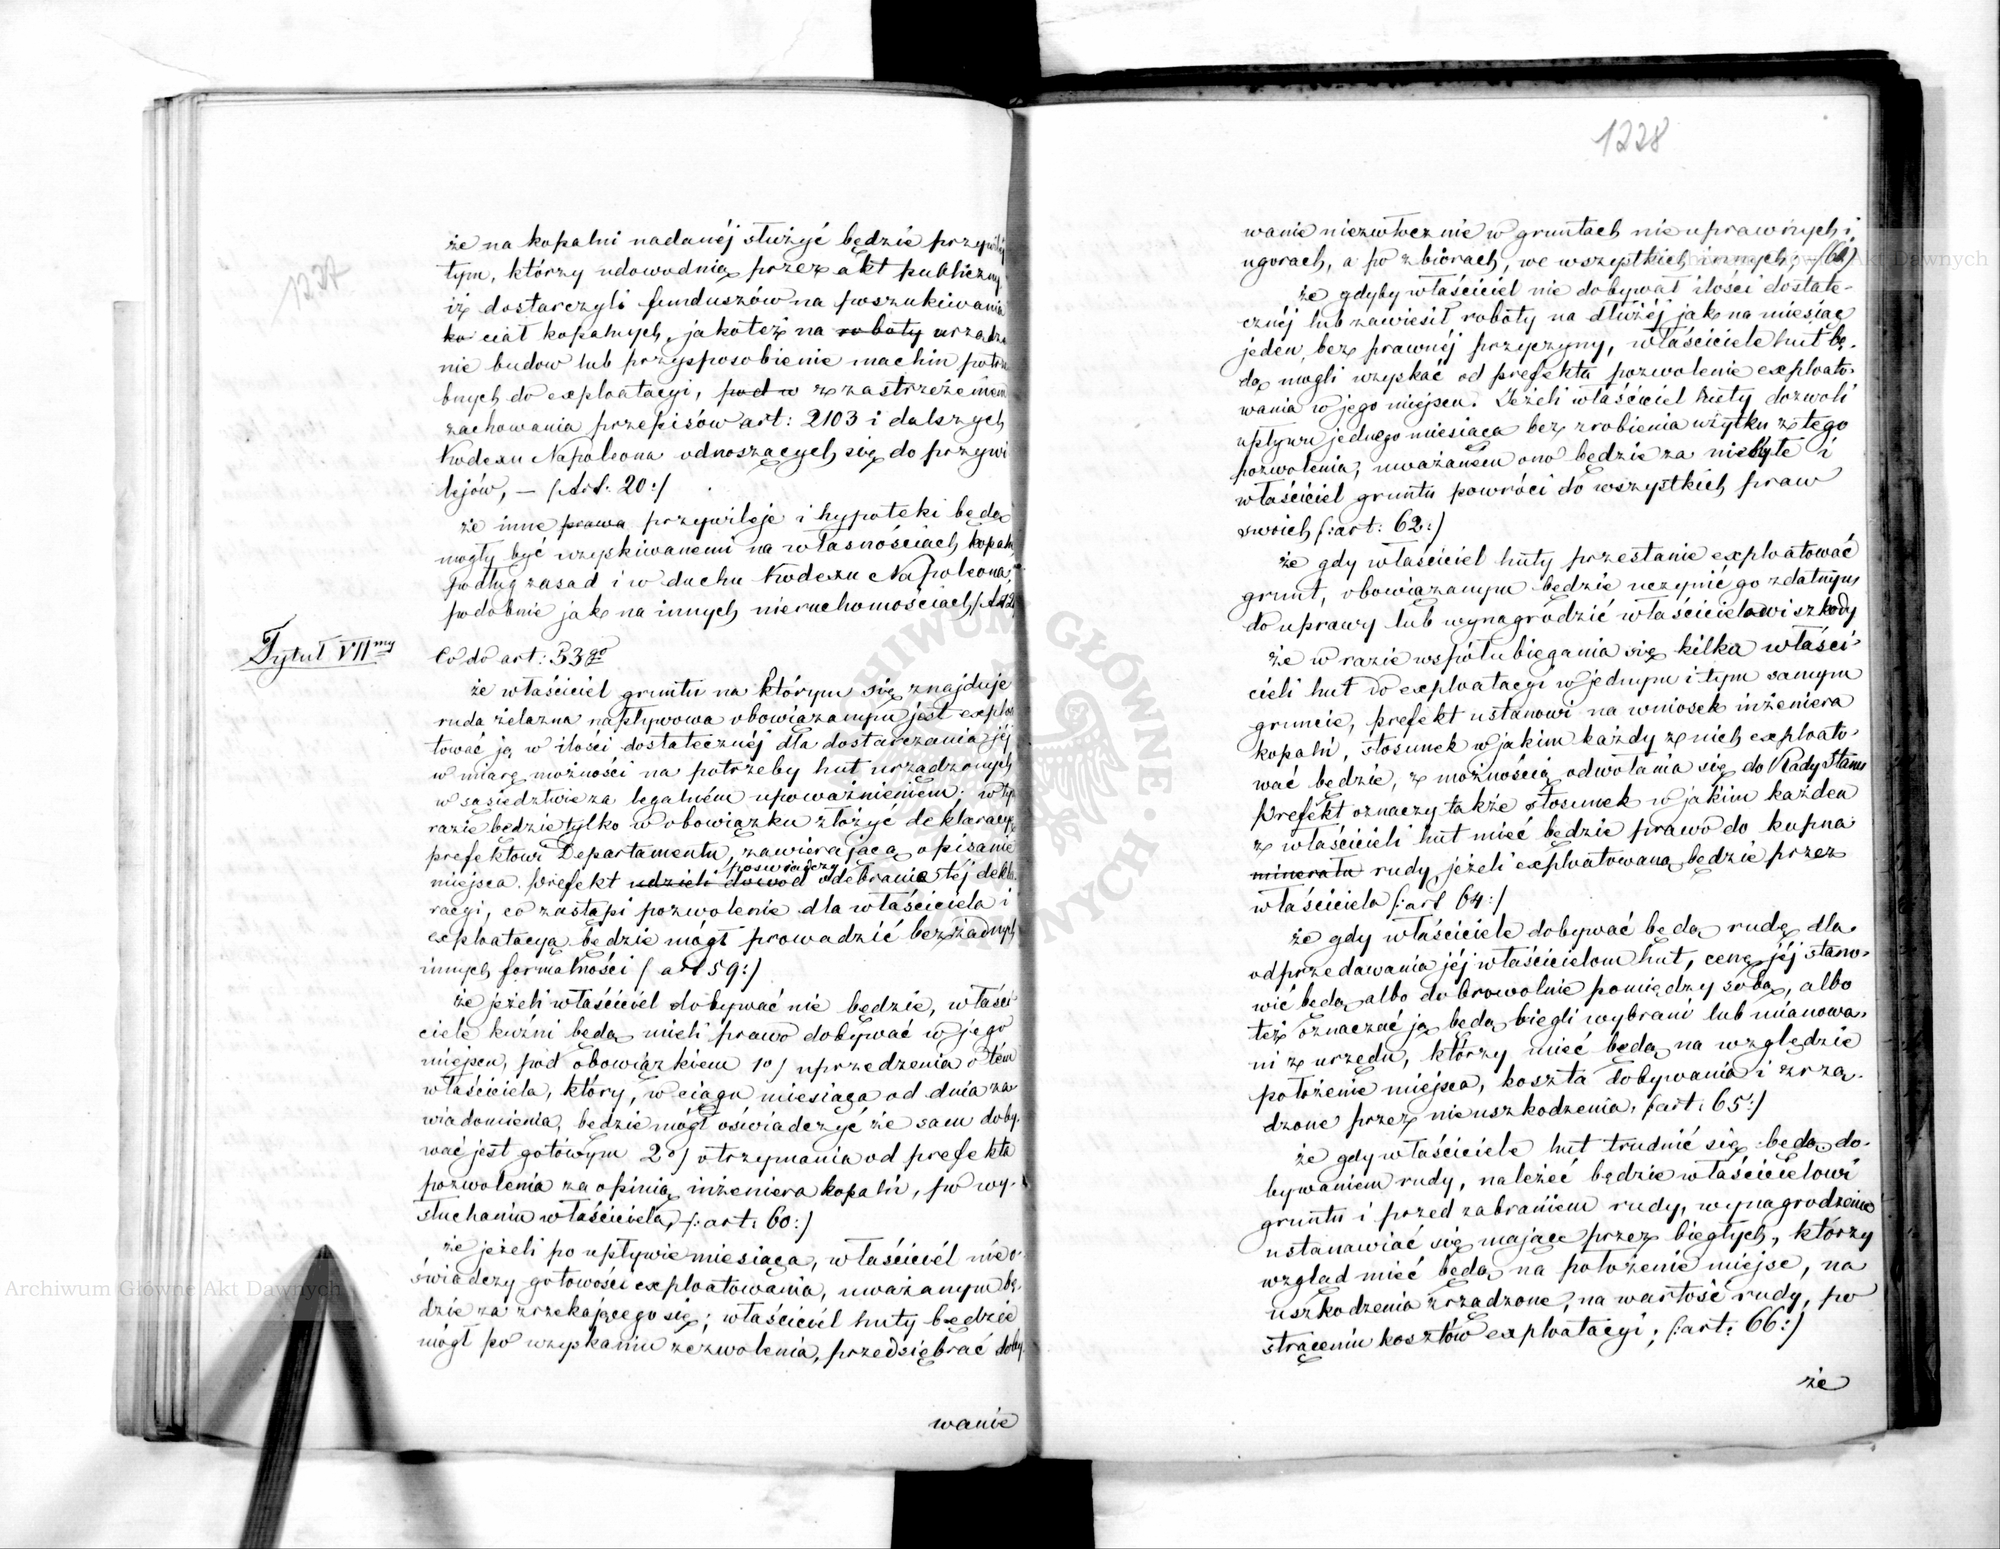 1237
że na kopalni nadanéj służyć będzie przywilej
tym, którzy udowodnią przez akt publiczny
iż dostarczyli funduszów na poszukiwania
ko ciał kopalnych, jakoteż na roboty urządze
nie budow lub przysposobienie machin potrze
bnych do exploatacyi, pod w z zastrzeżeniem
zachowania przepisów art: 2103 i dalszych
Kodexu Napoleona odnoszących się do przywi
lejów, — /:Art: 20:/
że inne prawa przywileje i hypoteki będą
mogły być uzyskiwanemi na własnościach kopalń
podług zasad i w duchu Kodexu Napoleona,
podobnie jak na innych nieruchomościach /:Art 21
Tytuł VII my
Co do art: 33 go
że właściciel gruntu na którym się znajduje
ruda żelazna napływowa obowiązanym jest explo
tować ją w ilości dostatecznéj dla dostarczania jéj
w miarę możności na potrzeby hut urządzonych
w sąsiedztwie za legalném upoważnieniem; w tym
razie będzie tylko w obowiązku złożyć deklaracyę
prefektowi Departamentu, zawierającą opisanie
poświadczy
miejsca. Prefekt udzieli dowód odebranie téj dekla
racyi, co zastąpi pozwolenie dla właściciela i
exploatacyą będzie mógł prowadzić bez żadnych
innych formalności /: art 59:/
że jeżeli właściciel dobywać nie będzie, właści
ciele kuźni będą mieli prawo dobywać w jego
miejscu, pod obowiązkiem 1o/ uprzedzenia o tém
właściciela, który, w ciągu miesiąca od dnia za
wiadomienia, będzie mógł oświadczyć że sam doby.
wać jest gotowym 2o/ otrzymania od prefekta
pozwolenia za opinią inżeniera kopalń, po wy.
słuchaniu właściciela, /:art: 60:/
że jeżeli po upływie miesiąca, właściciel nie o.
świadczy gotowości exploatowania, uważanym bę.
dzie za zrzekającego się; właściciel huty będzie
mógł po uzyskaniu zezwolenia, przedsiębrać doby.
wanie
1228
wanie niezwłocznie w gruntach nieuprawnych i
ugorach, a po zbiorach, we wszystkich innych; —/:61:/
że gdyby właściciel nie dobywał ilości dostate-
cznéj lub zawiesił roboty na dłużéj jak na miesiąc
jeden bez prawnéj przyczyny, właściciele hut bę.
dą mogli uzyskać od prefekta pozwolenie exploato.
wania w jego miejscu. Jeżeli właściciel huty dozwoli
upływu jednego miesiąca bez zrobienia użytku z tego
pozwolenia, uważanem ono będzie za niebyłe i
właściciel gruntu powróci do wszystkich praw
swoich /:art: 62:/
że gdy właściciel huty przestanie exploatować
grunt, obowiązanym będzie uczynić go zdatnym
do uprawy lub wynagrodzić właścicielowi szkody
że w razie wspołubiegania się kilka właści-
cieli hut do exploatacyi w jednym i tym samym
gruncie, prefekt ustanowi na wniosek inżeniera
kopalń, stosunek w jakim każdy z nich exploato.
wać będzie, z możnością odwołania się do Rady Stanu
Prefekt oznaczy także stosunek w jakim każden
z właścicieli hut mieć będzie prawo do kupna
minerału rudy jeżeli exploatowaną będzie przez
właściciela /:art 64:/
że gdy właściciele dobywać będą rudę dla
odprzedawania jéj właścicielom hut, cenę jéj stano.
wić będą albo dobrowolnie pomiędzy sobą, albo
też oznaczać ją będą biegli wybrani lub mianowa.
ni z urzędu, którzy mieć będą na względzie
położenie miejsca, koszta dobywania i zrzą.
dzone przez nie uszkodzenia, /:art: 65:/
że gdy właściciele hut trudnić się będą do.
bywaniem rudy, należeć będzie właścicielowi
gruntu i przed zabraniem rudy, wynagrodzenie
ustanawiać się mające przez biegłych, którzy
wzgląd mieć będą na położenie miejsc, na
uszkodzenia zrządzone, na wartość rudy, po
strąceniu kosztów exploatacyi; /:art: 66:/
że
Archiwum Główne Akt Dawnych